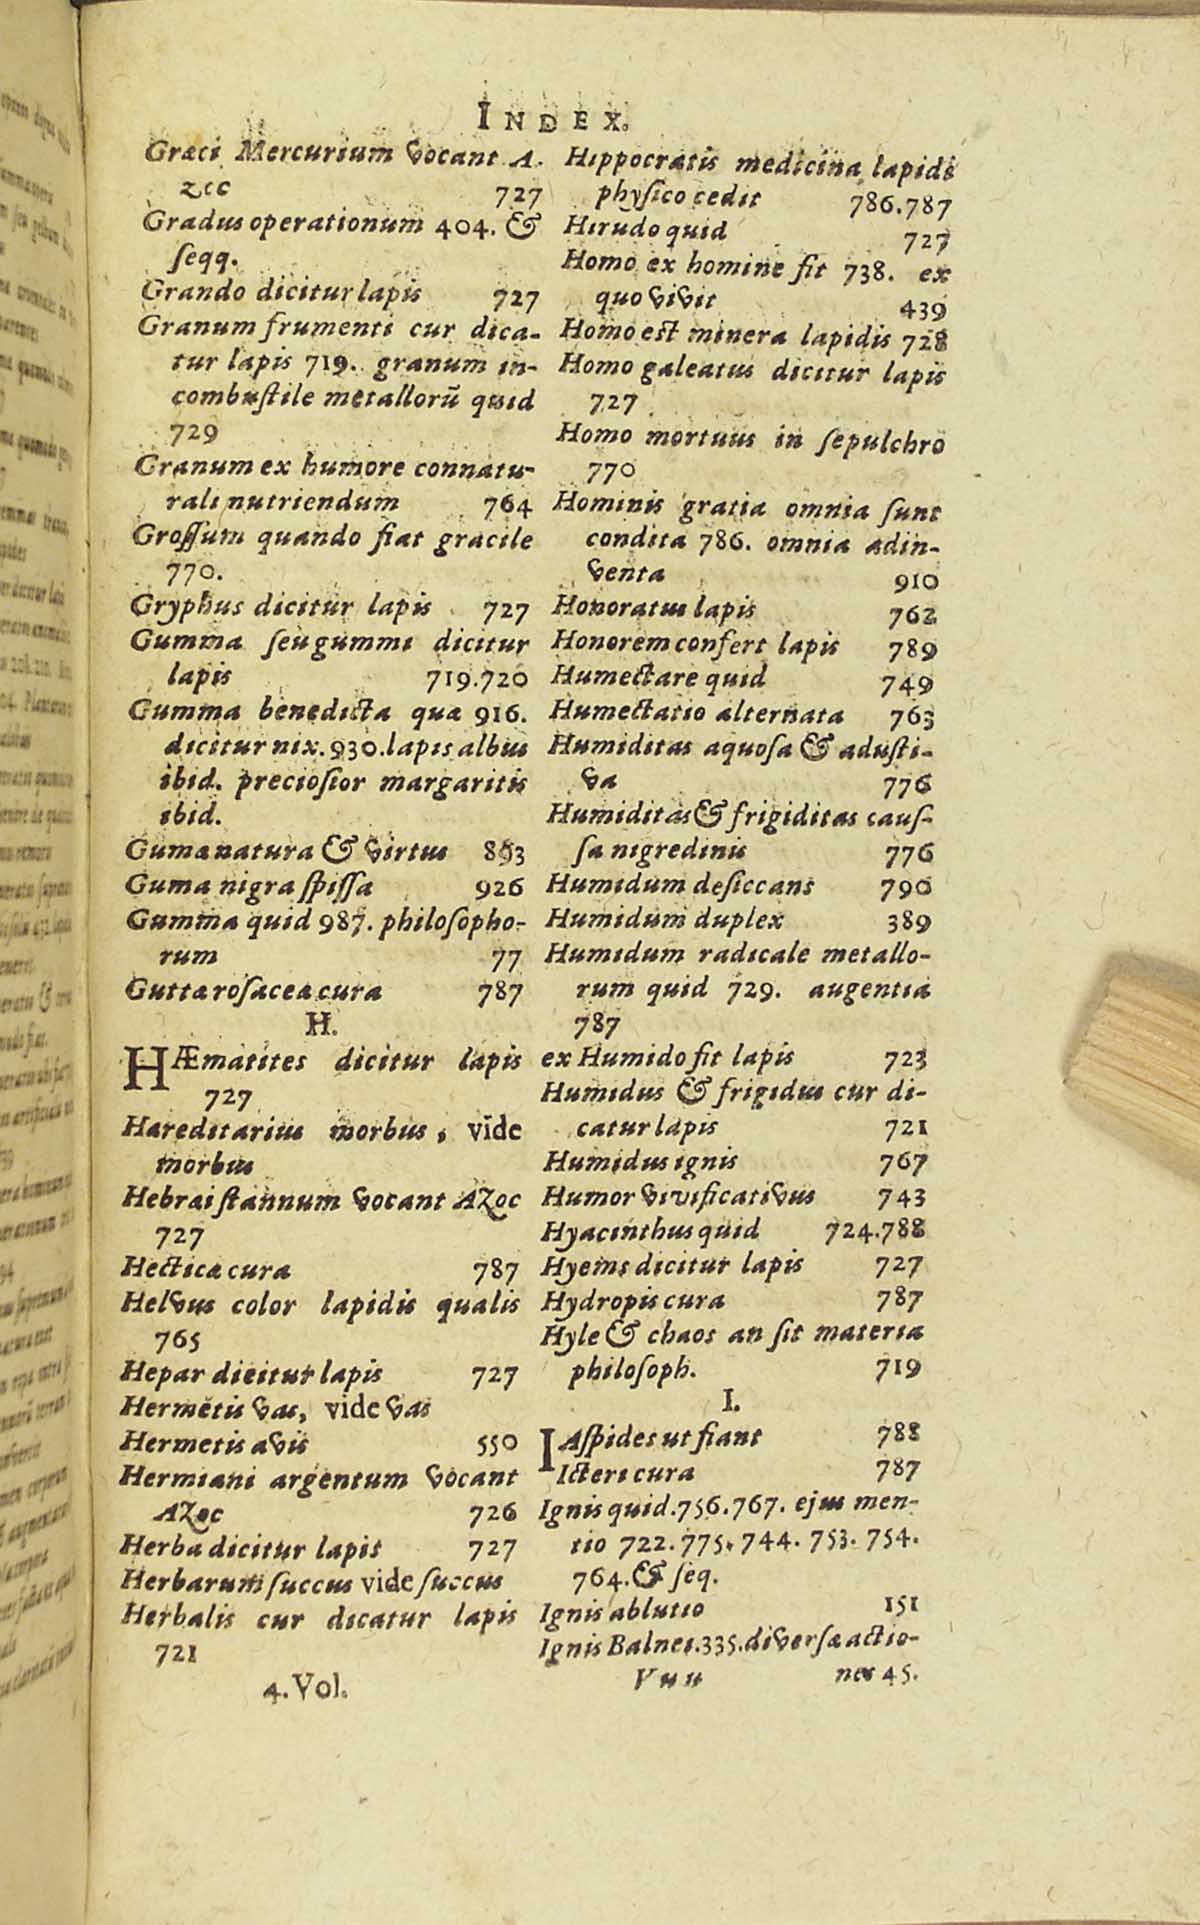 INDEX.
Græci Mercurium vocant A-
zec 727
Gradus operationum 404. &
ſeqq.
Grando dicitur lapis 727
Granum frumenti cur dica-
tur lapis 719. granum in-
combuſtile metallorũ quid
729
Granum ex humore connatu-
rali nutriendum 764
Groſſum quando fiat gracile
770.
Gryphus dicitur lapis 727
Gumma ſeu gummi dicitur
lapis 719.720
Gumma benedicta quæ 916.
dicitur nix. 930. lapis albus
ibid. precioſior margaritis
ibid.
Guma natura & virtus 893
Guma nigra ſpiſſa 926
Gumma quid 987. philoſopho-
rum 77
Gutta roſacea cura 787
H.
HÆmatites dicitur lapis
727
Hareditarius morbus, vide
morbus
Hebrai ſtannum vocant AZoc
727
Hectica cura 787
Helvus color lapidis qualis
765
Hepar dicitur lapis 727
Hermetis vas, vide vas
Hermetis avis 550
Hermiani argentum vocant
AZoc 726
Herba dicitur lapis 727
Herbarum ſuccus vide ſuccus
Herbalis cur dicatur lapis
721
4. Vol.
Hippocratis medicina lapidi
phyſico cedit 786.787
Hirudo quid 727
Homo ex homine fit 738. ex
quo vivit 439
Homo est minera lapidis 728
Homo galeatus dicitur lapis
727
Homo mortuus in ſepulchro
770
Hominis gratia omnia ſunt
condita 786. omnia adin-
venta 910
Honoratus lapis 762
Honorem confert lapis 789
Humectare quid 749
Humectatio alternata 763
Humiditas aquoſa & aduſti-
va 776
Humiditas & frigiditas cauſ-
ſa nigredinis 776
Humidum deſiccans 790
Humidum duplex 389
Humidum radicale metallo-
rum quid 729. augentia
787
ex Humido fit lapis 723
Humidus & frigidus cur di-
catur lapis 721
Humidus ignis 767
Humor vivificativus 743
Hyacinthus quid 724.788
Hyems dicitur lapis 727
Hydropis cura 787
Hyle & chaos an ſit materia
philoſoph. 719
I.
IAſpides ut fiant 788
Icteri cura 787
Ignis quid. 756. 767. ejus men-
tio 722. 775. 744. 753. 754.
764. & ſeq.
Ignis ablutio 151
Ignis Balnei. 335. diverſæ actio-
Vuu nes 45.